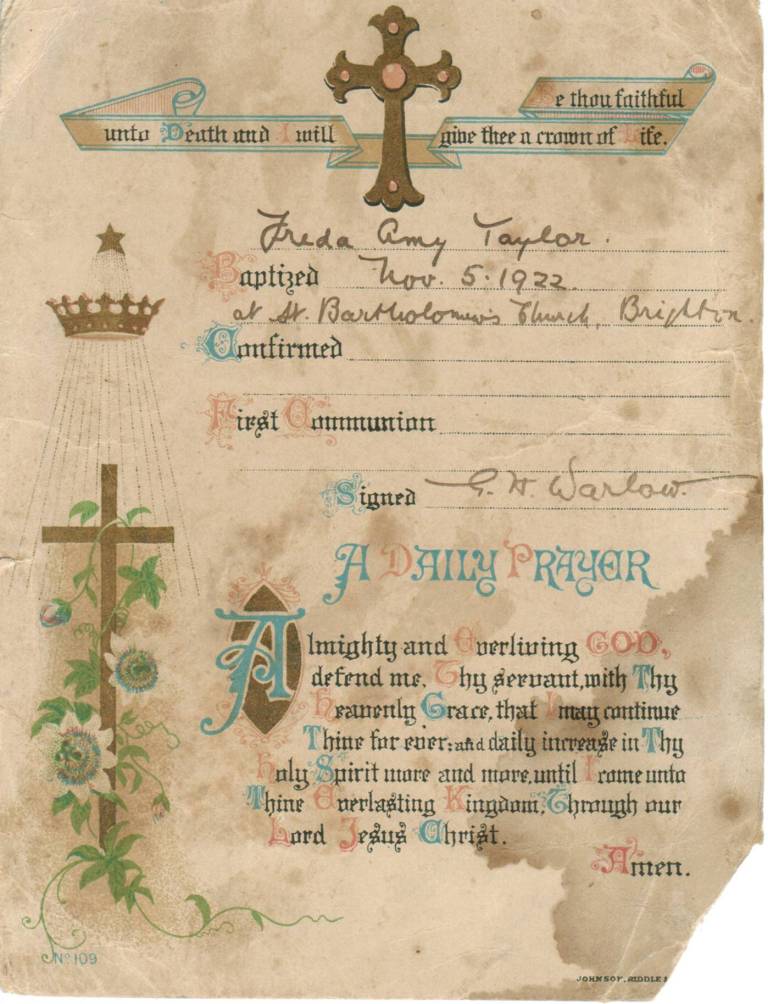 Be thou faithful
unto Death and I will give thee a crown of Life.
Freda Amy Taylor.
Baptized Nov. 5. 1922.
at St. Bartholomew's Church, Brighton.
Confirmed
First Communion
Signed G. H. Warlow.
A DAILY PRAYER
Almighty and Everliving GOD,
defend me, Thy servant, with Thy
heavenly Grace, that I may continue
Thine for ever: and daily increase in Thy
holy Spirit more and more, until I come unto
Thine Everlasting Kingdom, Through our
Lord Jesus Christ.
Amen.
No 109
JOHNSON, RIDDLE &